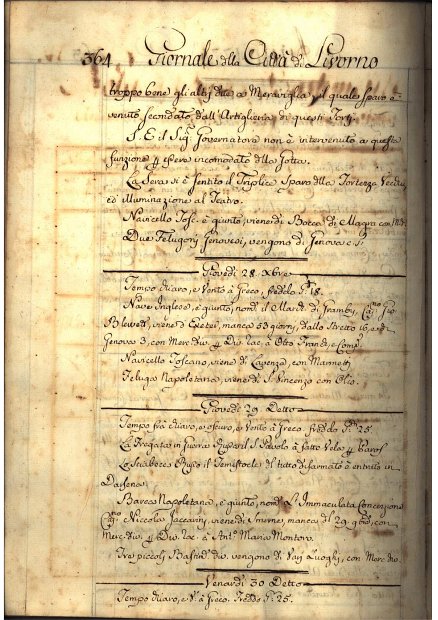 364 Giornale della Città di Livorno
troppo bene gli altri due a Meraviglia, il quale sparo è
venuto secondato dall'Artiglieria di questi Forti.
S. E. il Sig.r Governatore non è intervenuto a questa
funzione p essere incomodato dlla Gotta.
La Sera si è sentito il Triplice Sparo dlla Fortezza Vecchia
ed illuminazione al Teatro.
Navicello Tosc. è giunto, viene di Bocca di Magra con
Due Felugoni Genovesi, vengono di Genova
Giovedì 28. Xbre
Tempo chiaro, e Vento à Greco, freddo 18.
Nave Inglese, è giunto, nom. il Mard. di Granby, Cap.no Gio
Blewett, viene d'Exeter, manca 53 giorni, dallo Stretto 16, e di
Genova 3, con Merc. div. p Div. rac. à Otto Frandi, e Comp.
Navicello Toscano, viene di Lavenza, con Marmetti
Feluga Napoletana, viene di S. Vincenzo con Olio.
Giovedì 29. Detto
Tempo frà chiaro, e oscuro, e Vento à Greco. freddo 25.
La Fregata in Guerra Russa il S. Pavolo à fatto Vela p
Lo Sciabecco Russo il Temistocle di tutto disarmato è entrato in
Darsena.
Barca Napoletana, è giunto, nom. L'Immaculata Concezione
Cap.no Niccola Jaccarini, viene di Smirne, manca dl 29 con
Merc. div. p Div. rac. à Ant.o Maria Montoro.
Tre piccoli Bastim. div. vengono di Varj Luoghi, con Merc. div.
Venardì 30 Detto
Tempo chiaro, e V.to à Greco. Freddo 25.